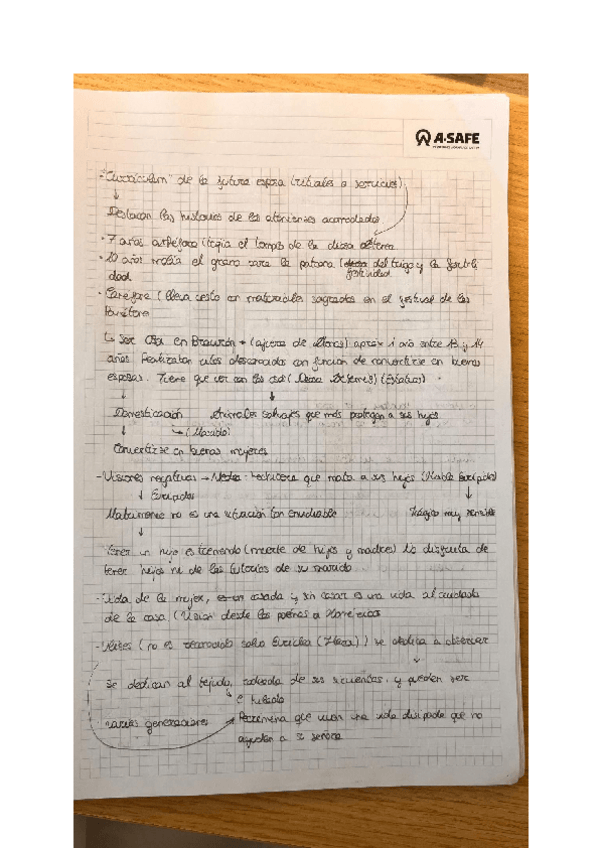 A-SAFE
- "Currículum" de la futura esposa (rituales o servicios)
Destacan las historias de las atenienses acomodadas
- 7 años arréfora (tejía el templo de la diosa Atenea
- 10 años molía el grano para la patrona del trigo y la fertili
festividad
dad
- Canéfora (lleva cesto con materiales sagrados en el festival de las
↳ Ser Osa en Braurón → (afueras de Atenas) aprox 1 año entre 13 y 14
años. Realizaban rites desconocidos con función de convertirse en buenas
esposas. Tiene que ver con las osas (Diosa) (Estatuas)
↓ ↓
Domesticación Animales salvajes que más protegen a sus hijos
↓
Convertirse en buenas mujeres
- Visiones negativas → Medea: hechicera que mata a sus hijos (Habla Eurípides)
↓ Eurípides ↓
Matrimonio no es una situación tan envidiable Trágico muy sensible
↓
Tener un hijo es tremendo (muerte de hijos y madres) No disfruta de
tener hijos ni de las de su marido
- Vida de la mujer, es en casada y sin casar es una vida al cuidado
de la casa (Visión desde los poemas a
(no es reconocido salvo Euriclea) se dedica a obedecer
Se dedican al tejido, rodeada de sus sirvientas y pueden ser
varias generaciones
Penélope que viven una vida que no
ayudan a su señora